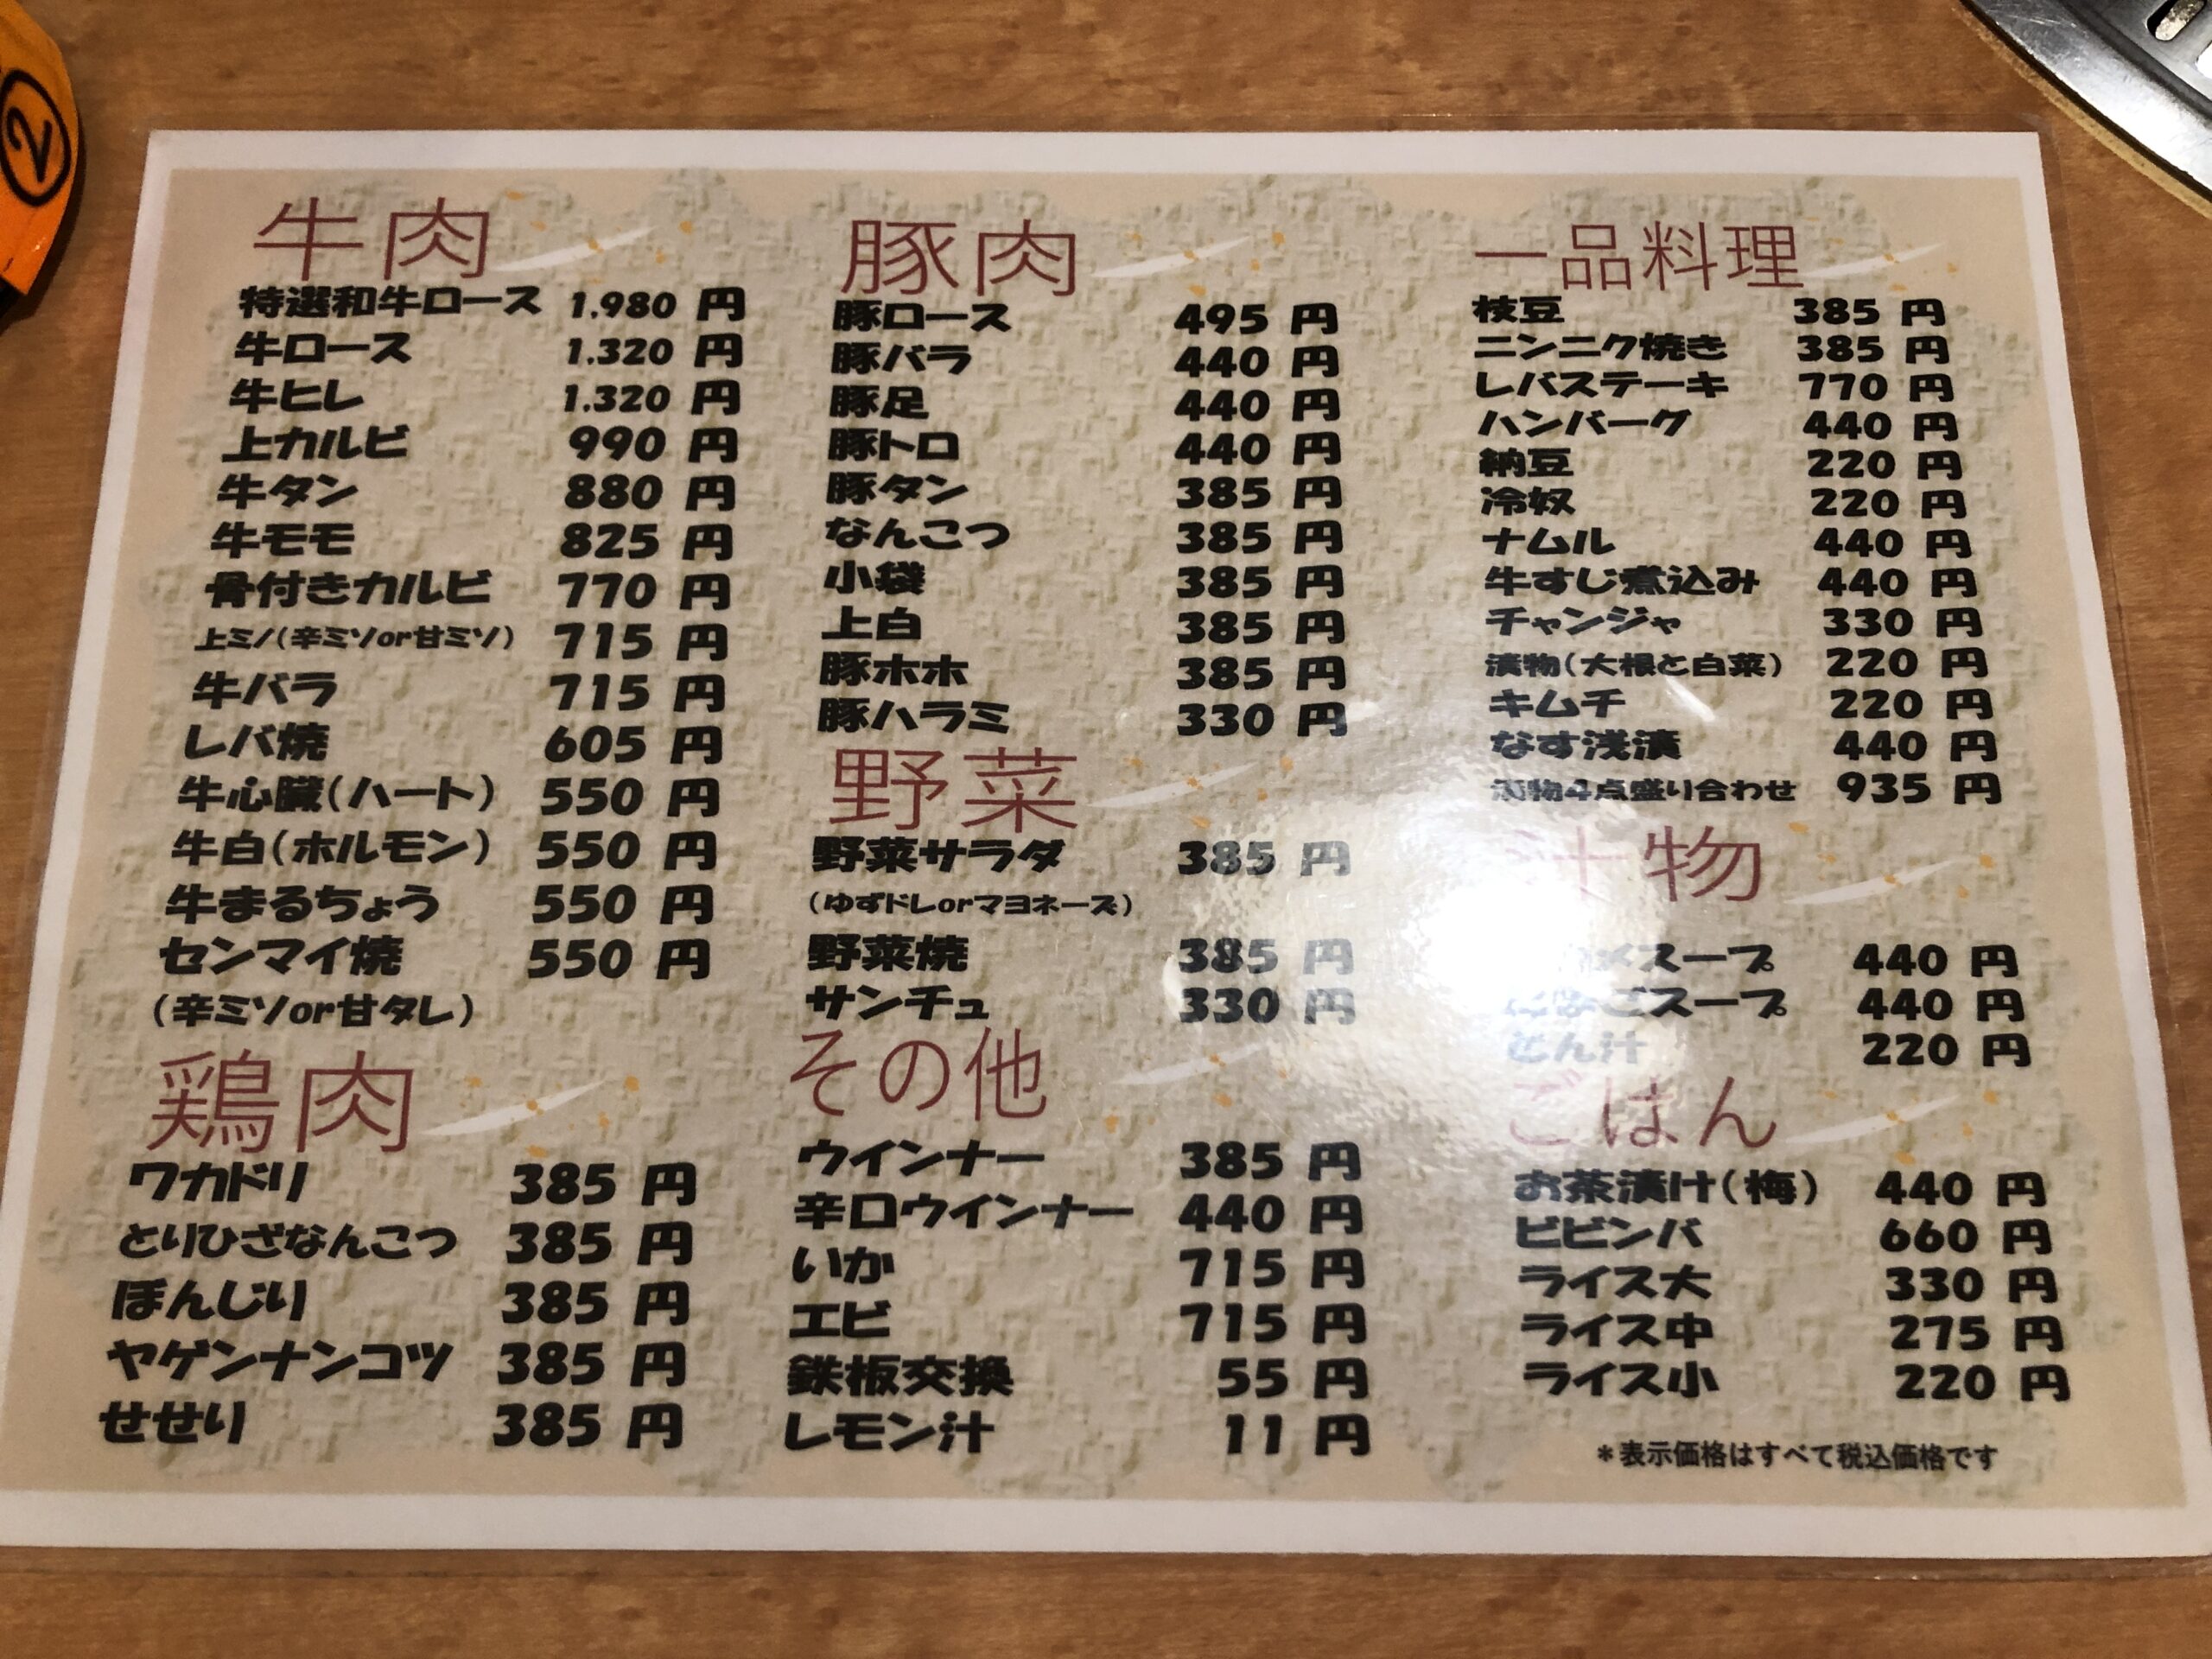 2
牛肉
特選和牛ロース 1.980 円
牛ロース 1.320 円
牛ヒレ 1.320 円
上カルビ 990 円
牛タン 880 円
牛モモ 825 円
骨付きカルビ 770 円
上ミノ(辛ミソor甘ミソ) 715 円
牛バラ 715 円
レバ焼 605 円
牛心臓(ハート) 550 円
牛白(ホルモン) 550 円
牛まるちょう 550 円
センマイ焼 550 円
(辛ミソor甘タレ)
鶏肉
ワカドリ 385 円
とりひざなんこつ 385 円
ぼんじり 385 円
ヤゲンナンコツ 385 円
せせり 385 円
豚肉
豚ロース 495 円
豚バラ 440 円
豚足 440 円
豚トロ 440 円
豚タン 385 円
なんこつ 385 円
小袋 385 円
上白 385 円
豚ホホ 385 円
豚ハラミ 330 円
野菜
野菜サラダ 385 円
(ゆずドレorマヨネーズ)
野菜焼 385 円
サンチュ 330 円
その他
ウインナー 385 円
辛口ウインナー 440 円
いか 715 円
エビ 715 円
鉄板交換 55 円
レモン汁 11 円
一品料理
枝豆 385 円
ニンニク焼き 385 円
レバステーキ 770 円
ハンバーグ 440 円
納豆 220 円
冷奴 220 円
ナムル 440 円
牛すじ煮込み 440 円
チャンジャ 330 円
漬物(大根と白菜) 220 円
キムチ 220 円
なす浅漬 440 円
漬物4点盛り合わせ 935 円
汁物
スープ 440 円
たまごスープ 440 円
とん汁 220 円
ごはん
お茶漬け(梅) 440 円
ビビンバ 660 円
ライス大 330 円
ライス中 275 円
ライス小 220 円
*表示価格はすべて税込価格です